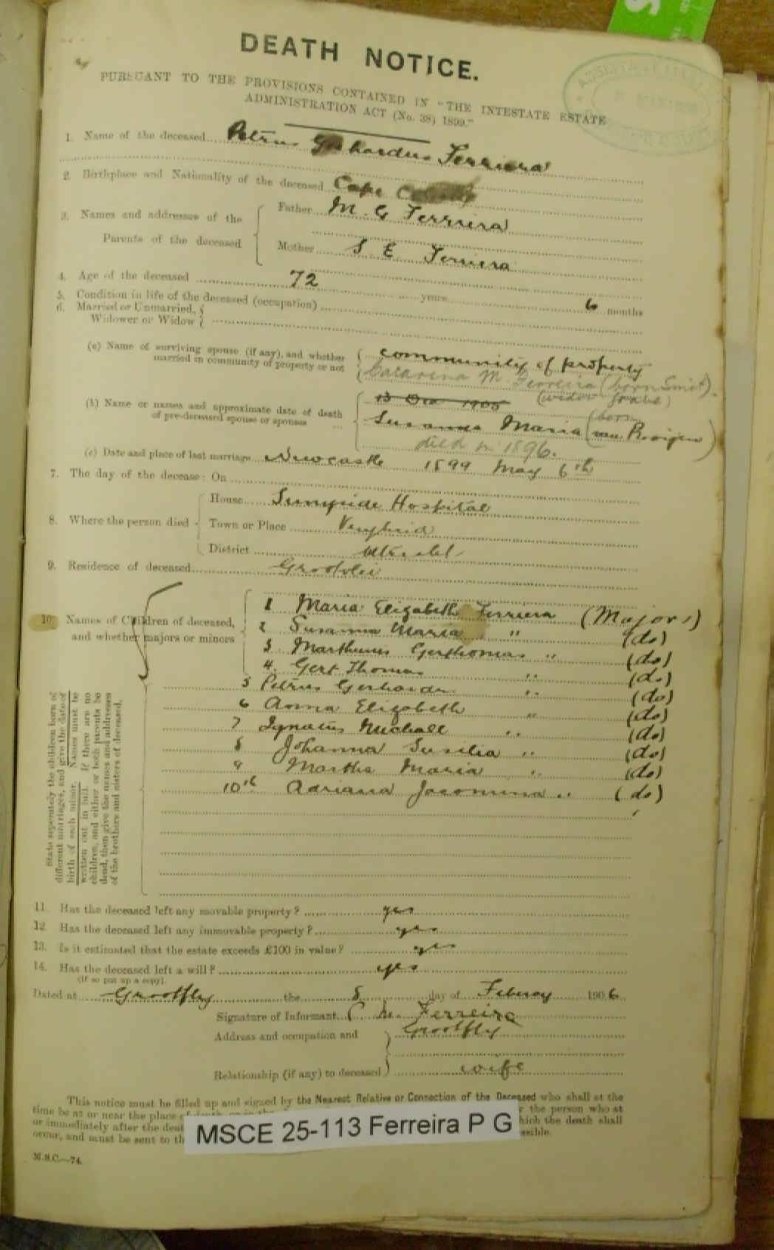 DEATH NOTICE.
PURSUANT TO THE PROVISIONS CONTAINED IN "THE INTESTATE ESTATE
ADMINISTRATION ACT (No. 38) 1899."
1. Name of the deceased Petrus Ferreira
2. Birthplace and Nationality of the deceased Cape
3. Names and addresses of the Parents of the deceased
Father M. G Ferreira
Mother S E Ferreira
4. Age of the deceased 72 years 6 months
5. Condition in life of the deceased (occupation)
6. Married or Unmarried,
Widower or Widow
(a) Name of surviving spouse (if any), and whether
married in community of property or not
community of property
Catarina M Ferreira (born Smit).
(b) Name or names and approximate date of death
of pre-deceased spouse or spouses
13 Dec 1905
Susanna Maria (born van Rooijen)
died in 1896.
(c) Date and place of last marriage Newcastle 1899 May 6th
7. The day of the decease: On
8. Where the person died
House Sunnyside Hospital
Town or Place Vryheid
District
9. Residence of deceased
10. Names of Children of deceased,
and whether majors or minors
1 Maria Elizabeth Ferreira (Major)
2 Susanna Maria " (do)
3 Marthinus Gerthomas " (do)
4. Gert Thomas " (do)
5 Petrus Gerhardus " (do)
6 Anna Elizabeth " (do)
7 Ignatius Michall " (do)
8 Johanna Susilia " (do)
9 Martha Maria " (do)
10th Adriana Jacomina " (do)
State separately the children born of
different marriages, and give the date of
birth of each minor. Names must be
written out in full. If there are no
children, and either or both parents be
dead, then give the names and addresses
of the brothers and sisters of deceased.
11. Has the deceased left any movable property? yes
12. Has the deceased left any immovable property? yes
13. Is it estimated that the estate exceeds £100 in value? yes
14. Has the deceased left a will? yes
(If so put up a copy).
Dated at Grootfly the 8 day of February 1906
Signature of Informant C M. Ferreira
Address and occupation and Grootfly
Relationship (if any) to deceased wife
This notice must be filled up and signed by the Nearest Relative or Connection of the Deceased who shall at the
time be at or near the place of the person who at
or immediately after the death which the death shall
occur, and must be sent to
MSCE 25-113 Ferreira P G
M.S.C.—74.